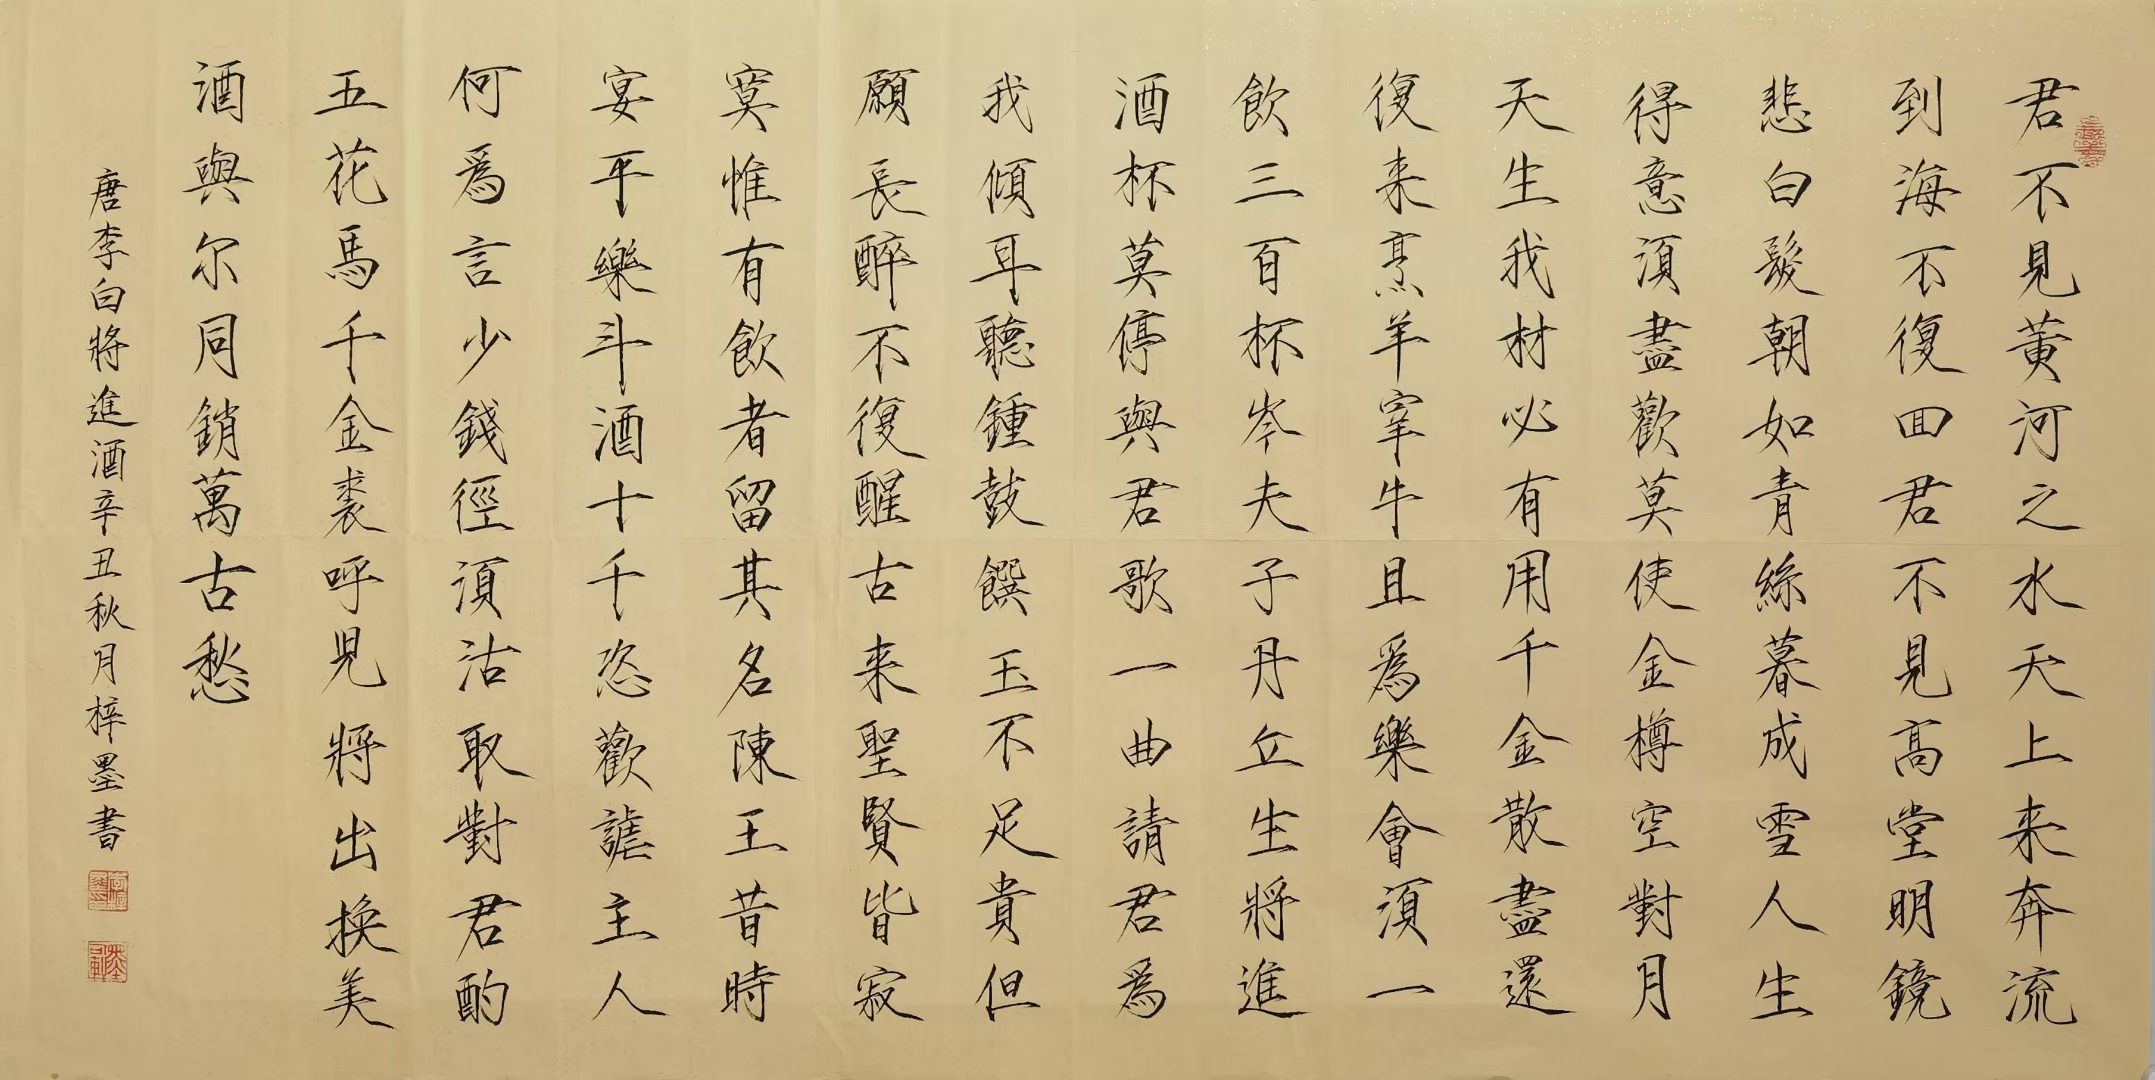 君不見黄河之水天上来奔流
到海不復回君不見高堂明鏡
悲白髮朝如青絲暮成雪人生
得意須盡歡莫使金樽空對月
天生我材必有用千金散盡還
復来烹羊宰牛且爲樂會須一
飲三百杯岑夫子丹丘生將進
酒杯莫停與君歌一曲請君爲
我傾耳聽鍾鼓饌玉不足貴但
願長醉不復醒古来聖賢皆寂
寞惟有飲者留其名陳王昔時
宴平樂斗酒十千恣歡謔主人
何爲言少錢徑須沽取對君酌
五花馬千金裘呼児將出換美
酒與尔同銷萬古愁
唐李白將進酒辛丑秋月梓墨書